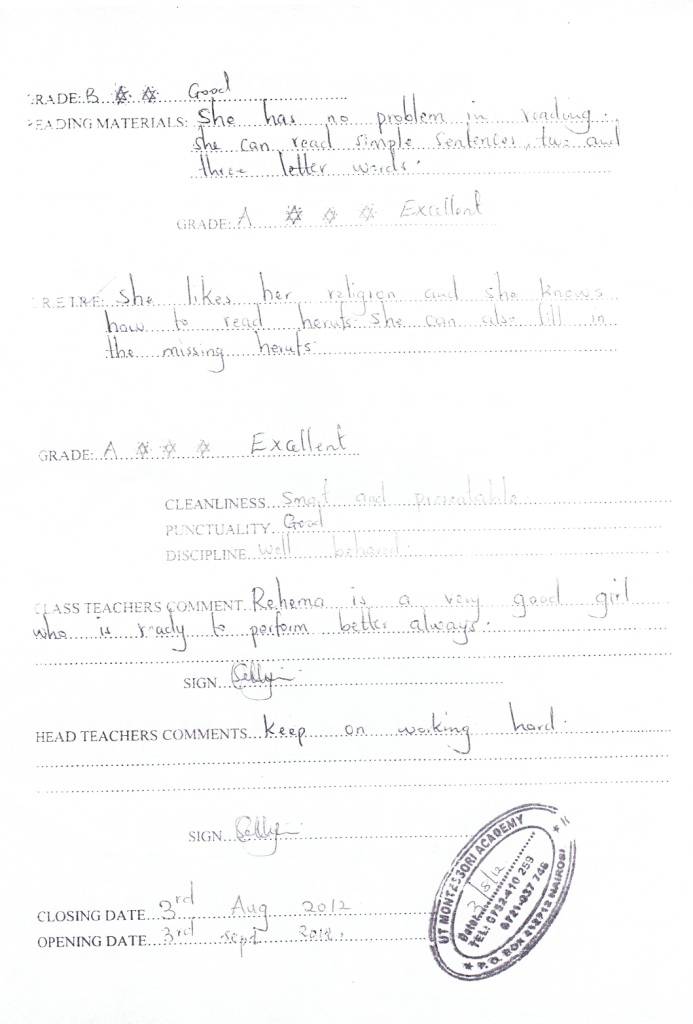 RADE: B ✡ ✡ Good
EADING MATERIALS: She has no problem in reading.
she can read simple sentences, two and
three letter words.
GRADE: A ✡ ✡ ✡ Excellent
I.R.E: She likes her religion and she knows
how to read heruts. She can also fill in
the missing heruts.
GRADE: A ✡ ✡ ✡ Excellent
CLEANLINESS Smart and presentable
PUNCTUALITY Good
DISCIPLINE Well behaved.
CLASS TEACHERS COMMENT Rehema is a very good girl
who is ready to perform better always.
SIGN
HEAD TEACHERS COMMENTS Keep on working hard.
SIGN
CLOSING DATE 3rd Aug 2012
OPENING DATE 3rd Sept 2012.
UT MONTESSORI ACADEMY
Date: 3/8/12
TEL: 0752-410 253
0721-937 746
P.O. BOX NAIROBI